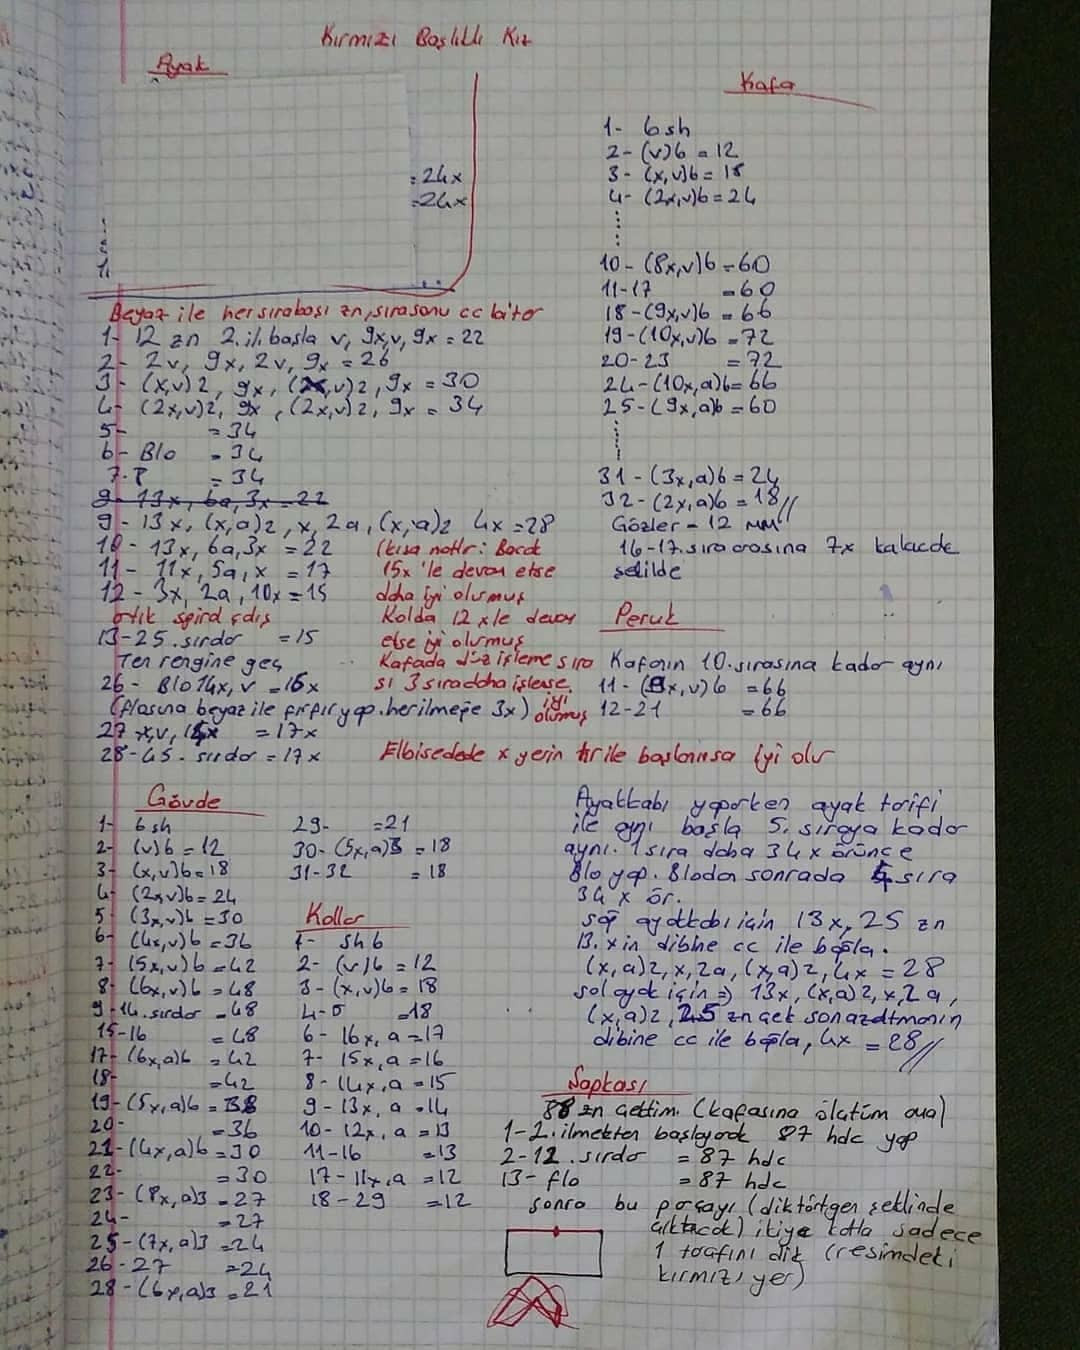 Kırmızı Başlıklı Kız
Ayak
=24x
=24x
1.
Beyaz ile her sırabaşı zn, sırasonu cc biter
1- 12 zn 2. il. başla v, 9x,v, 9x = 22
2- 2v, 9x, 2v, 9x = 26
3- (x,v)2, 9x, (x,v)2, 9x = 30
4- (2x,v)2, 9x, (2x,v)2, 9x = 34
5- = 34
6- Blo = 34
7. = 34
9- 13x, 6a, 3x = 22
9- 13x, (x,a)2, x, 2a, (x,a)2 4x = 28
10- 13x, 6a, 3x = 22
11- 11x, 5a, x = 17
12- 3x, 2a, 10x = 15
(kısa notlr: Bacak
15x'le devam etse
daha iyi olurmuş
Kolda 12 x le devam
etse iyi olurmuş
Kafada düz işleme sıra
sı 3 sıra daha işlense
iyi
olurmuş
artık spiral çalış
13-25. sırdar =15
Ten rengine geç
26- Blo 14x, v =16x
(flosuna beyaz ile fırfır yap. her ilmeğe 3x)
27 x,v, 15x = 17x
28-45. sırdar = 17x
Elbisedede x yerin tr ile başlanırsa iyi olur
Kafa
1- 6sh
2- (v)6 = 12
3- (x,v)6 = 18
4- (2x,v)6 = 24
10- (8x,v)6 = 60
11-17 = 60
18-(9x,v)6 = 66
19-(10x,v)6 = 72
20-23 = 72
24-(10x,a)6= 66
25-(9x,a)6 = 60
31-(3x,a)6 = 24
32-(2x,a)6 = 18//
Gözler - 12 mm
16-17. sıra arasına 7x kalacak
şekilde
Peruk
Kafanın 10. sırasına kadar aynı
11- (9x,v)6 = 66
12-21 = 66
Gövde
1- 6 sh
2- (v)6 = 12
3- (x,v)6 = 18
4- (2x,v)6 = 24
5- (3x,v)6 = 30
6- (4x,v)6 = 36
7- (5x,v)6 = 42
8- (6x,v)6 = 48
9-14. sırdar = 48
15-16 = 48
17- (6x,a)6 = 42
18- = 42
19-(5x,a)6 = 36
20- = 36
21-(4x,a)6 = 30
22- = 30
23-(8x,a)3 = 27
24- = 27
25-(7x,a)3 = 24
26-27 = 24
28-(6x,a)3 = 21
29- =21
30-(5x,a)3 = 18
31-32 = 18
Kollar
1- sh 6
2- (v)6 = 12
3- (x,v)6 = 18
4-5 =18
6- 16x, a = 17
7- 15x, a = 16
8- 14x, a = 15
9- 13x, a = 14
10- 12x, a = 13
11-16 = 13
17-11x, a = 12
18-29 = 12
Ayakkabı yaparken ayak tarifi
ile aynı başla 5. sıraya kadar
aynı. 1 sıra daha 34x örünce
Blo yap. Blodan sonrada sıra
34 x ör.
sağ ayakkabı için 13x, 25 zn
13. x in dibine cc ile bağla.
(x,a)2, x, 2a, (x,a)2, 4x = 28
sol ayak için => 13x, (x,a)2, x, 2a,
(x,a)2, 25 zn çek son azaltmanın
dibine cc ile bağla, 4x = 28//
Şapkası
88 zn çektim. (kafasına ölçtüm ona)
1-2. ilmekten başlayarak 87 hdc yap
2-12. sırdar = 87 hdc
13- flo = 87 hdc
sonra bu parçayı (diktörtgen şeklinde
çıkacak) ikiye katla sadece
1 tarafını dik (resimdeki
kırmızı yer)